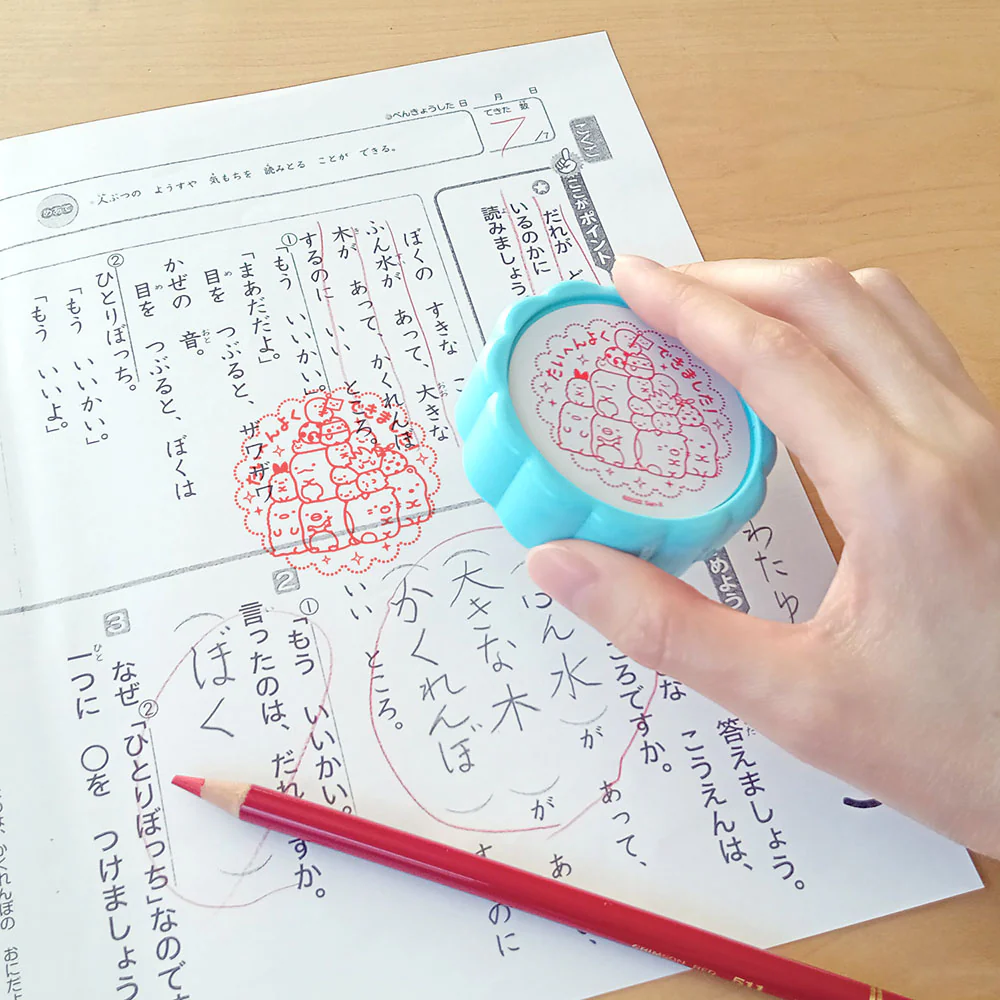 こくご
できた 数
7/7
◎べんきょうした日 月 日
めあて
人ぶつの ようすや 気もちを 読みとる ことが できる。
ここがポイント
だれが
いるのかに
読みましょう
ぼくの すきな
ふん水が あって、大きな
木が あって、かくれんぼ
するのに いい ところ。
①「もう いいかい。
「まあだだよ。
目を つぶると、ザワザワ
かぜの 音。
目を つぶると、ぼくは
②ひとりぼっち。
「もう いいかい」。
「もう いいよ。
たいへんよく できました!
わたゆ
めよう
答えましょう。
こうえんは、
な
ころですか。
ふん水が あって、
大きな木が あ
かくれんぼ するのに
いい ところ。
2
①「もう いいかい。
言ったのは、だれですか。
ぼく
3
なぜ ②「ひとりぼっち」なので
一つに ○を つけましょう
CRIMSON RED 511